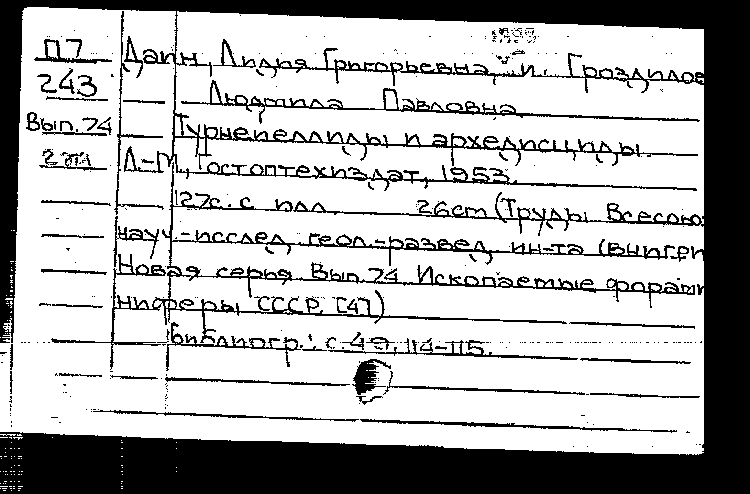 П7 Даин, Лидия Григорьевна, и Гроздилов
243 Людмила Павловна
Вып. 74 Турнейеллиды и архедисциды.
2 эк Л-М, Гостоптехиздат, 1953.
127с. с илл. 26cm (Труды Всесоюз
науч-исслед. геол.-развед. ин-та (ВНИГРИ
Новая серья Вып. 74. Ископаемые форами
ниферы СССР. [4])
Библиогр.: с. 49, 114-115.